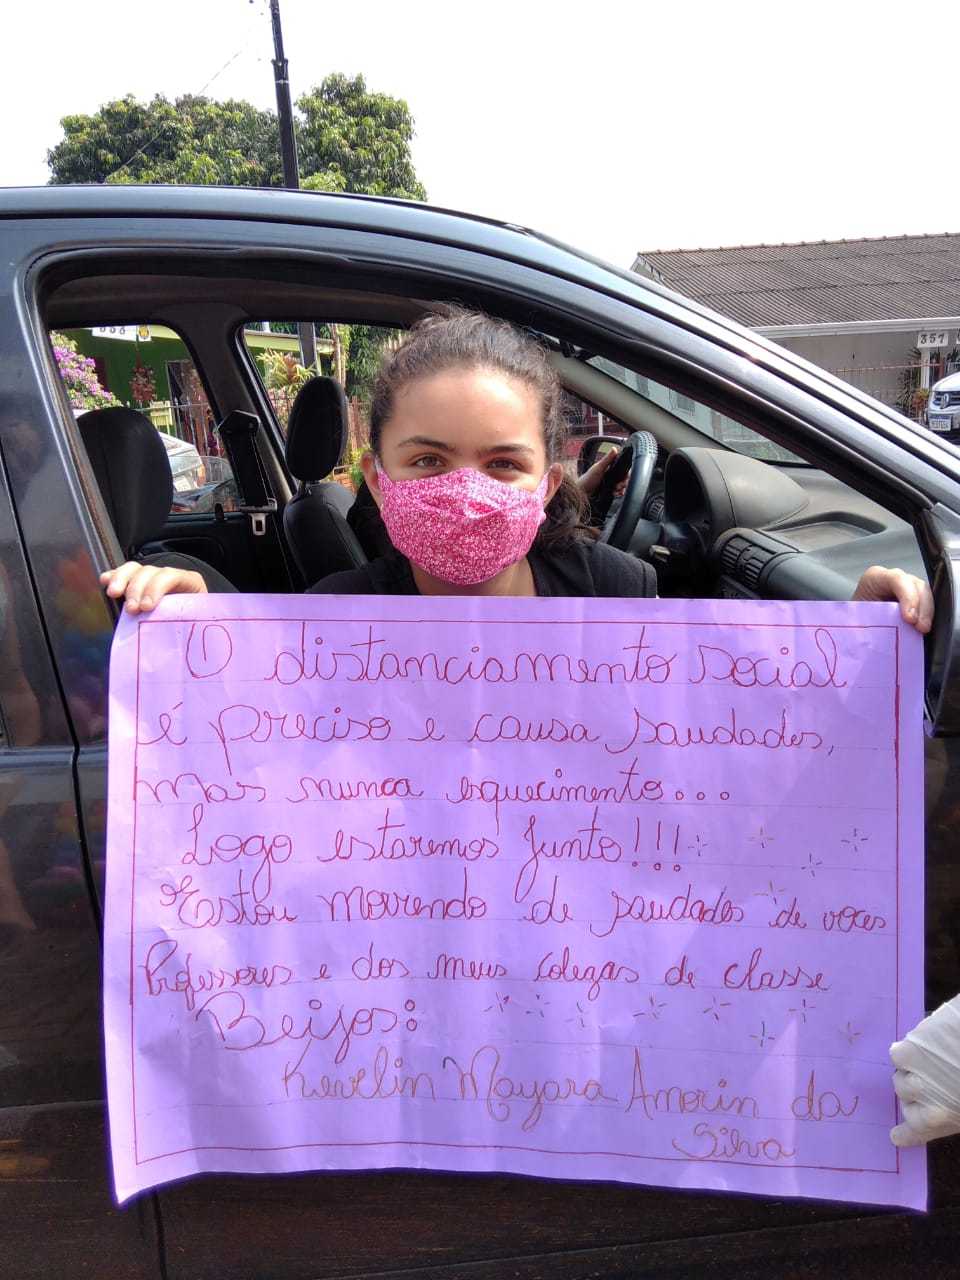 O distanciamento social
é preciso e causa saudades,
mas nunca esquecimento...
Logo estaremos junto!!!
Estou morrendo de saudades de voces
Professores e dos meus colegas de classe
Beijos:
Kevelin Mayara Amorin da
Silva
357